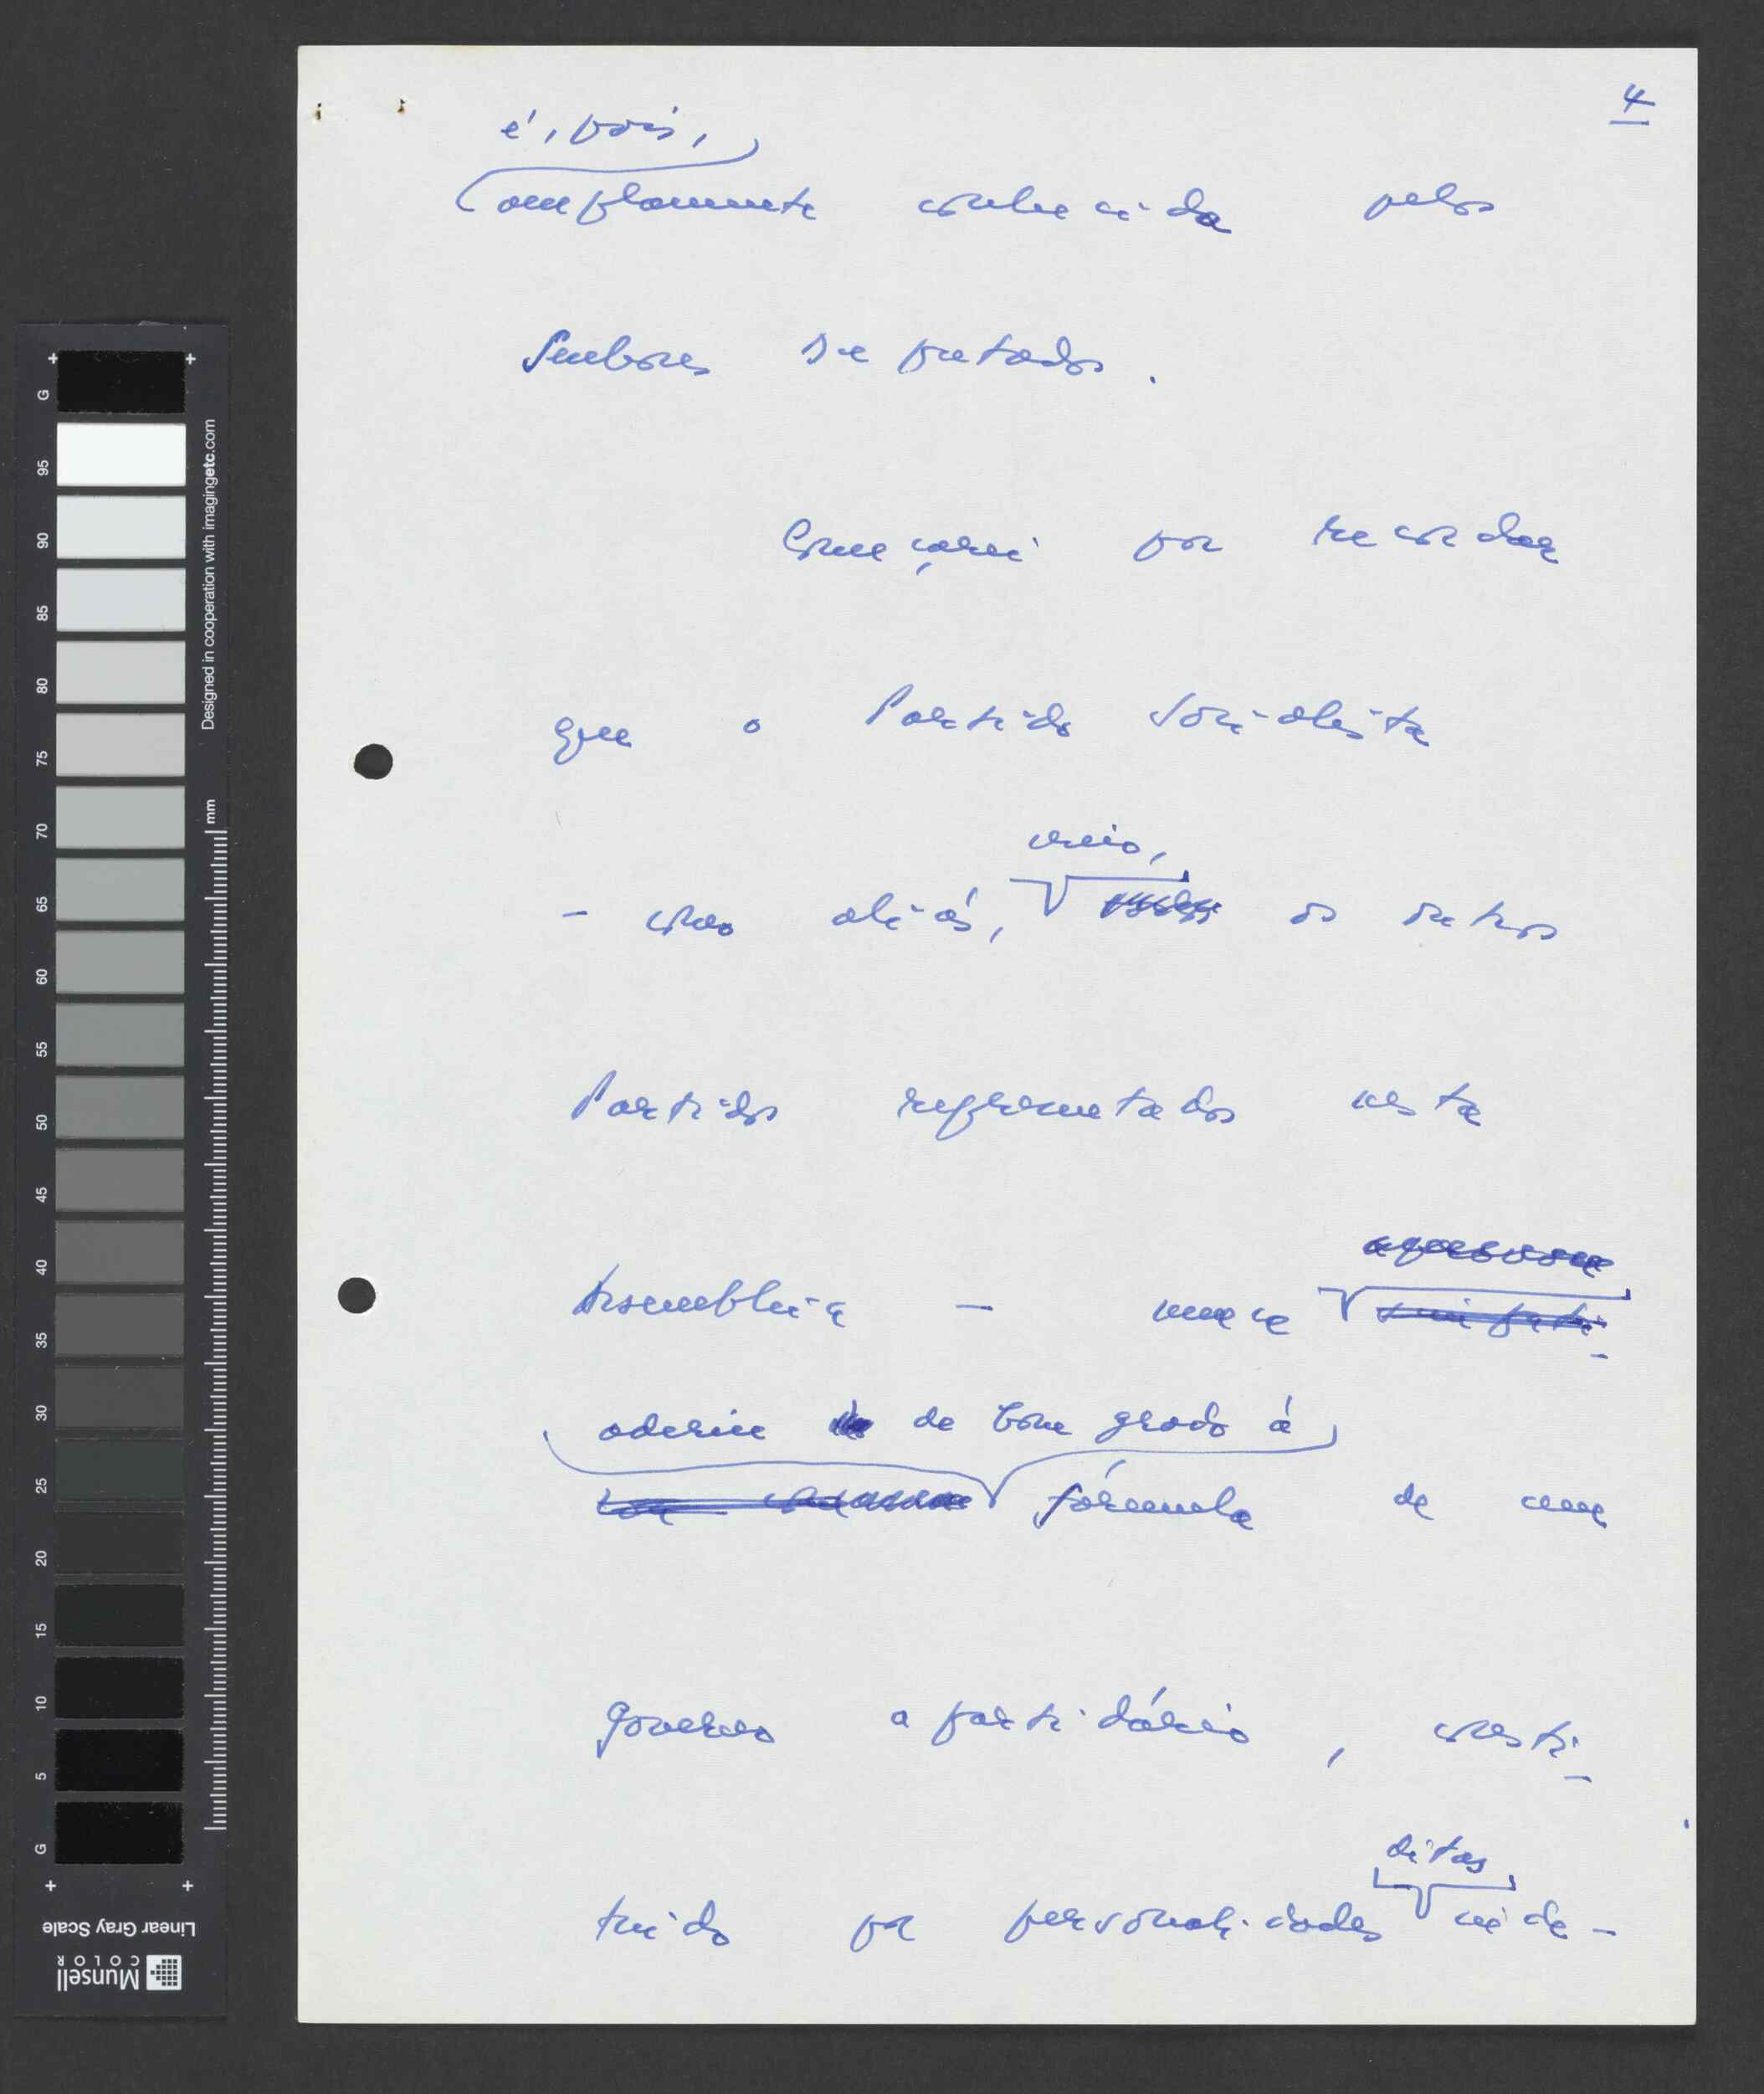 4
é, pois,
amplamente conhecida pelos
Senhores Deputados.
Começarei por recordar
que o Partido Socialista
creio,
- como aliás, todos os outros
Partidos representados nesta
Assembleia - nunca
aderiu de bom grado à
fórmula de um
governo apartidário, consti-
ditas
tuido por personalidades inde-
G
95
90
85
80
75
70
65
60
55
50
45
40
35
30
25
20
15
10
5
G
Designed in cooperation with imagingetc.com
mm
Linear Gray Scale
Munsell
COLOR